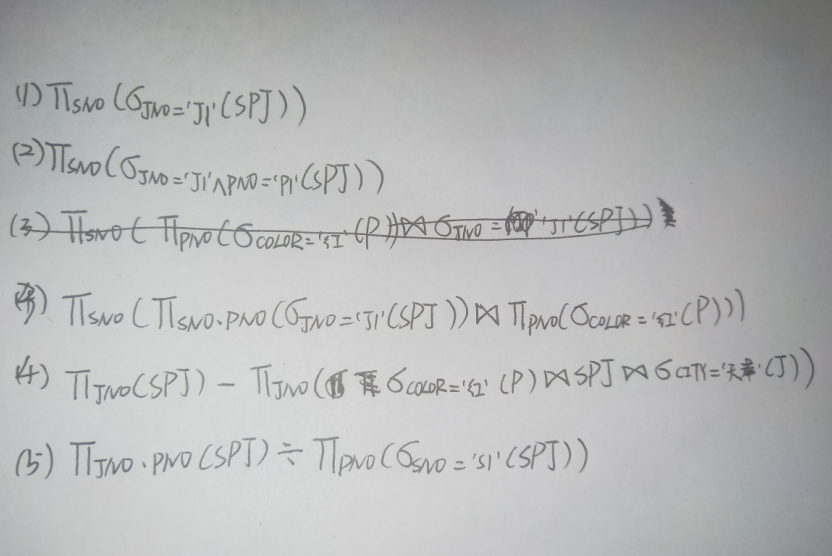 (1) ΠSNO(σJNO='J1'(SPJ))
(2) ΠSNO(σJNO='J1'∧PNO='P1'(SPJ))
(3) ΠSNO(ΠPNO(σCOLOR='红'(P))⋈σJNO='J1'(SPJ))
3) ΠSNO(ΠSNO.PNO(σJNO='J1'(SPJ))⋈ΠPNO(σCOLOR='红'(P)))
(4) ΠJNO(SPJ)-ΠJNO(σCOLOR='红'(P)⋈SPJ⋈σCITY='天津'(J))
(5) ΠJNO.PNO(SPJ)÷ΠPNO(σSNO='S1'(SPJ))